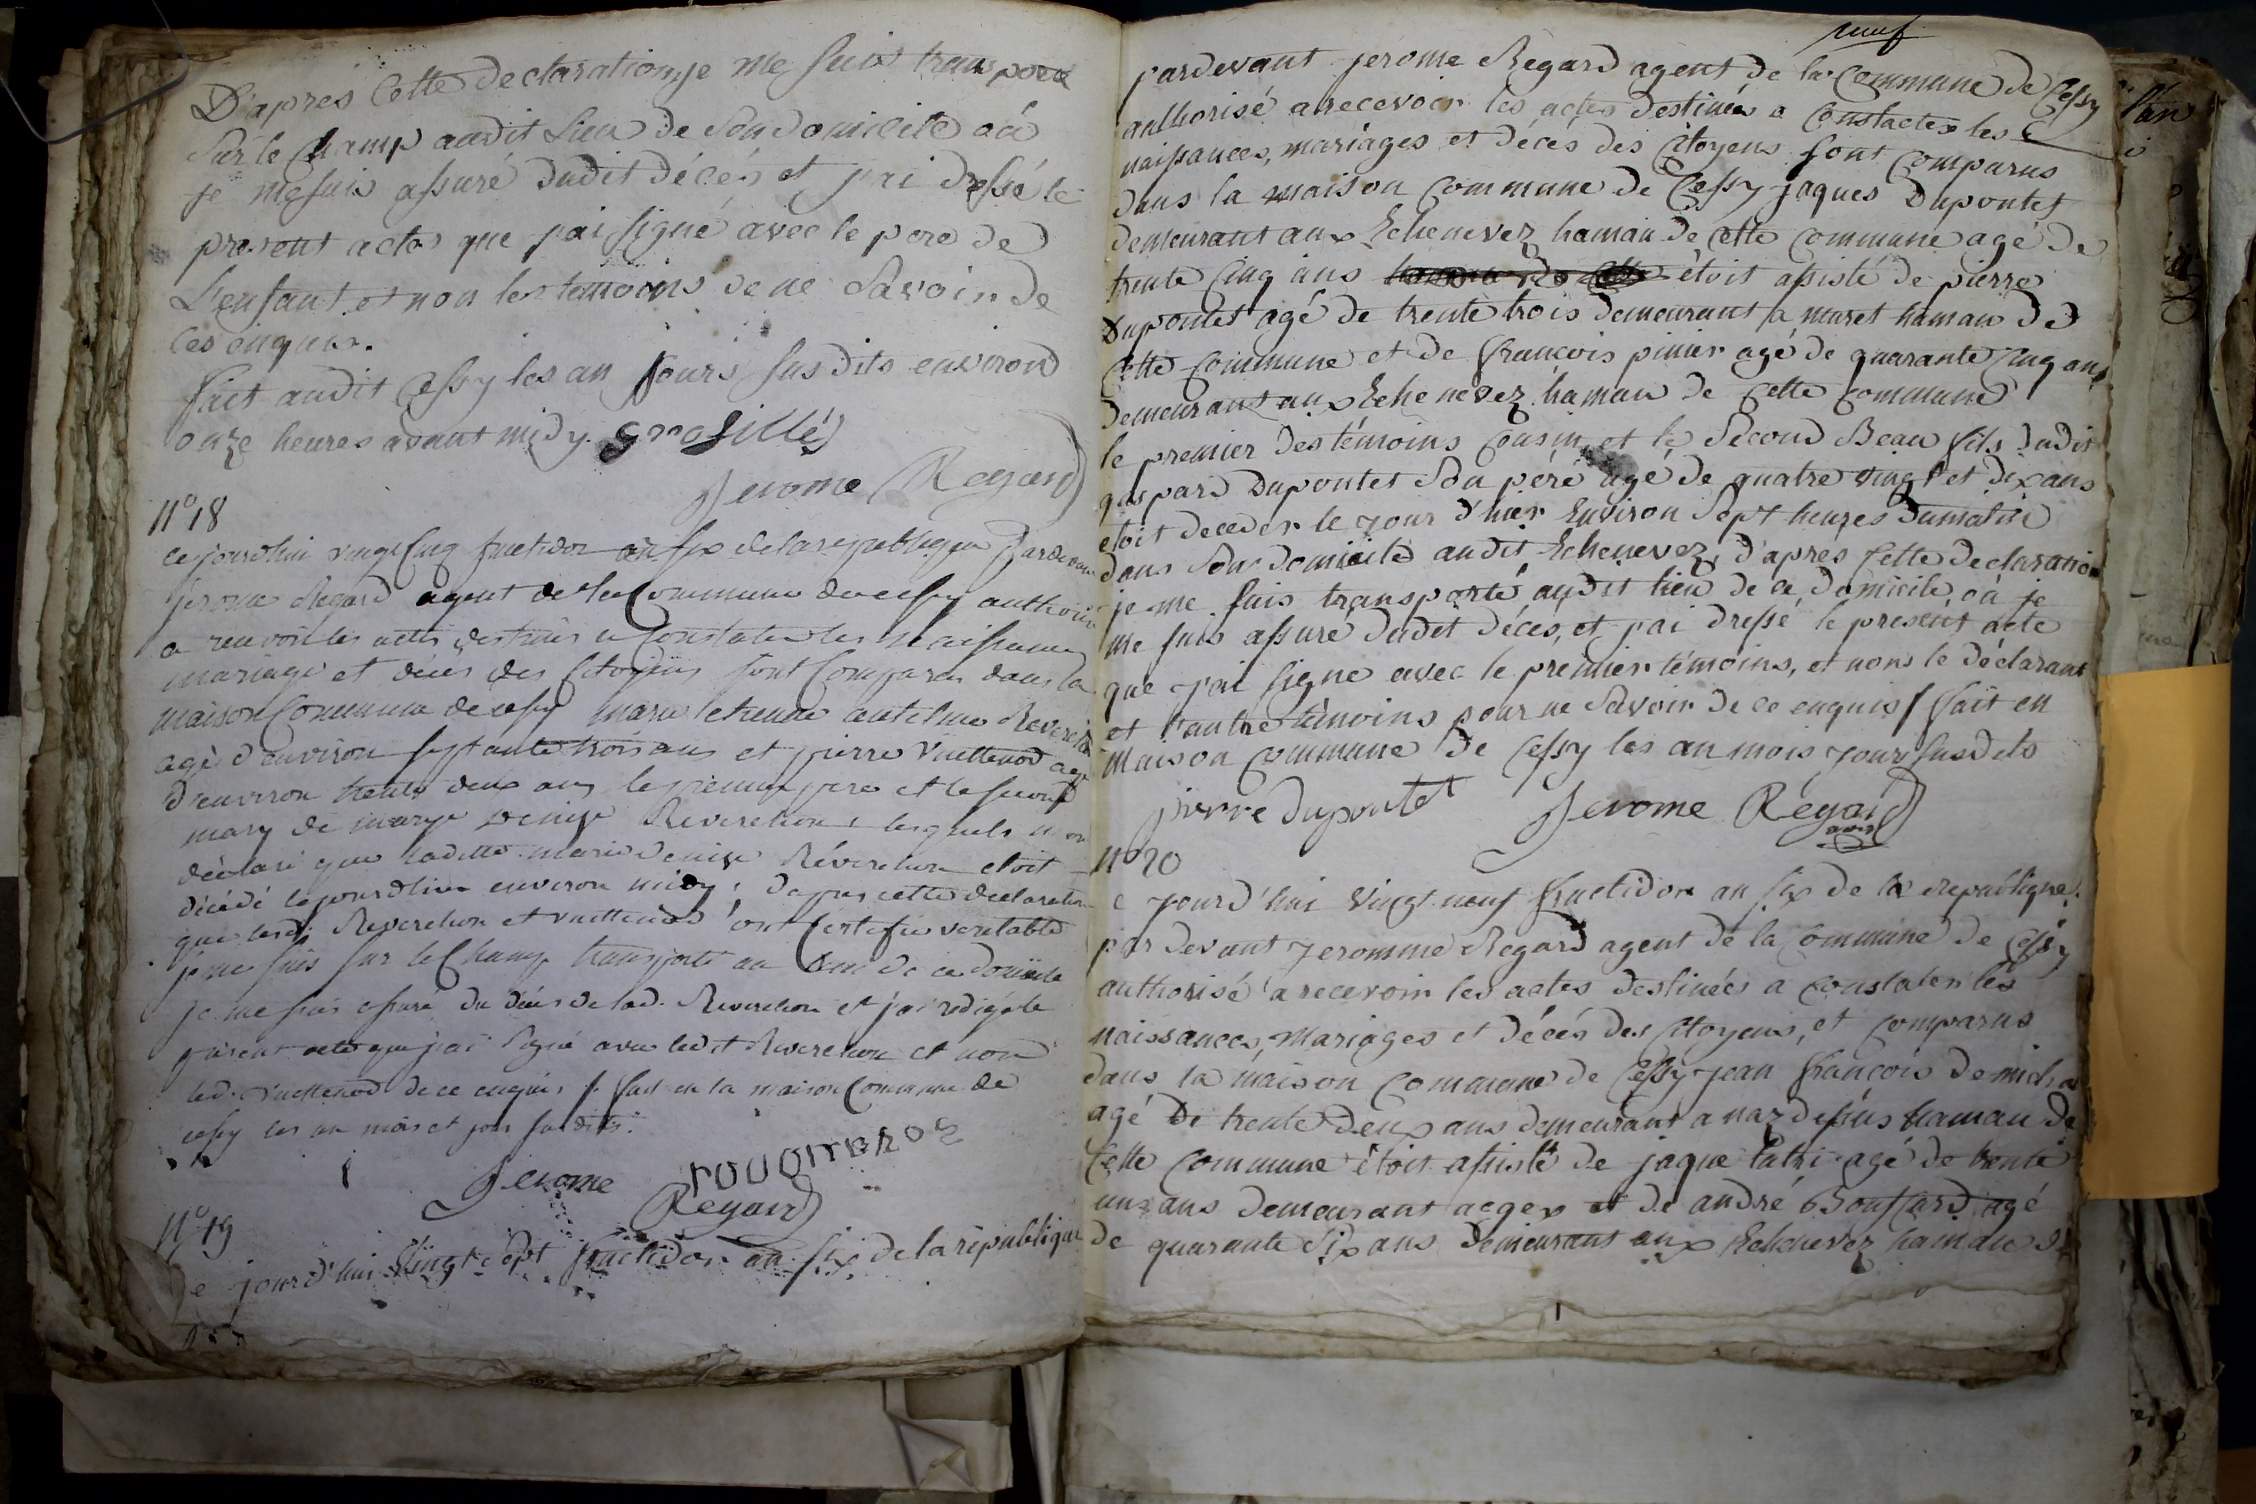 D'apres Cette declaration je me suis transporté
Sur le Champ audit Lieu de Son domicile où
je me suis assuré dudit décés et j'ai dressé le
present actes que j'ai signé avec le pere de
L'enfant et non les temoins de ne Savoir de
ces enquis.
fait audit Cessy les an jours susdits environ
onze heures avant midy. grosillés
Jerome Regard
N° 18
ce jourdhui vingt cinq fructidor an six de la republique Pardevant
Jerome Regard agent de la Commune de cessy authorisé
a recevoir les actes destinés a Constater les naissances
mariage et décés des Citoyens sont Comparu dans la
maison Commune de cessy marie antelme Reverchon
agé d'environ septante trois ans et pierre Vuettenod agé
d'environ trente deux ans le premier pere et le second
mary de marye denise Reverchon lesquels m'on
déclaré que laditte marie denise Réverchon etoit
décédé cejourdhui environ midy, dapres cette declaration
que lesd. Reverchon et vuettenod ont Certifié veritable
je me suis sur le Champ transporté au lieu de ce domicile
je me suis assuré du décés de lad. Reverchon et j'ai redigé le
présent acte que j'ai Signé avec ledit Reverchon et non
led. vuettenod de ce enquis / fait en la maison Commune de
cessy les an mois et jour susdits.
Jerome
Regard
N° 19
Ce jourd'hui Vingt sept fructidor an six de la république
neuf
pardevant jerome Regard agent de la Commune de Cessy
authorisé a recevoir les actes destinées a Constater les
naissances, mariages et décés des Citoyens sont Comparus
dans la maison Commune de Cessy jaques Dupontet
demeurant aux Echenevez hamau de Cette Commune agé de
trente Cinq ans étoit assisté de pierre
Dupontet agé de trente trois demeurant a muret hamau de
Cette Commune et de françois pinier agé de quarante Cinq ans
demeurant aux Echenevez hamau de Cette Commune
le premier des témoins Cousin, et le Second Beau fils dudit
gaspard Dupontet Son péré agé de quatre vingt et dix ans
étoit deceder le jour d'hier Environ Sept heures dumatin
dans Son domicile audit Echenevez, d'apres Cette declaration
je me suis transporté audit lieu de ce domicile où je
me suis assure dudit décés, et j'ai dressé le present acte
que j'ai signe avec le premier témoins, et nons le déclarant
et l'autre témoins pour ne Savoir de ce enquis / fait en
Maison Commune de Cessy les an mois jour susdits
pierre dupontet Jerome Régard
N° 20
Ce jourd'hui Vingt neuf fructidor an six de la republique
par devant jeromme Regard agent de la Commune de Cessy
authorisé a recevoir les actes destinées a Constater les
naissances, Mariages et décés des Citoyens, et Comparus
dans la maison Commune de Cessy jean françois
agé de trente deux ans demeurant a naz dessus hamau de
Cette Commune étoit assisté de jaque agé de trente
uns ans demeurant a gex et de andré Boussard agé
de quarante Six ans demeurant aux Echenevez hamau de